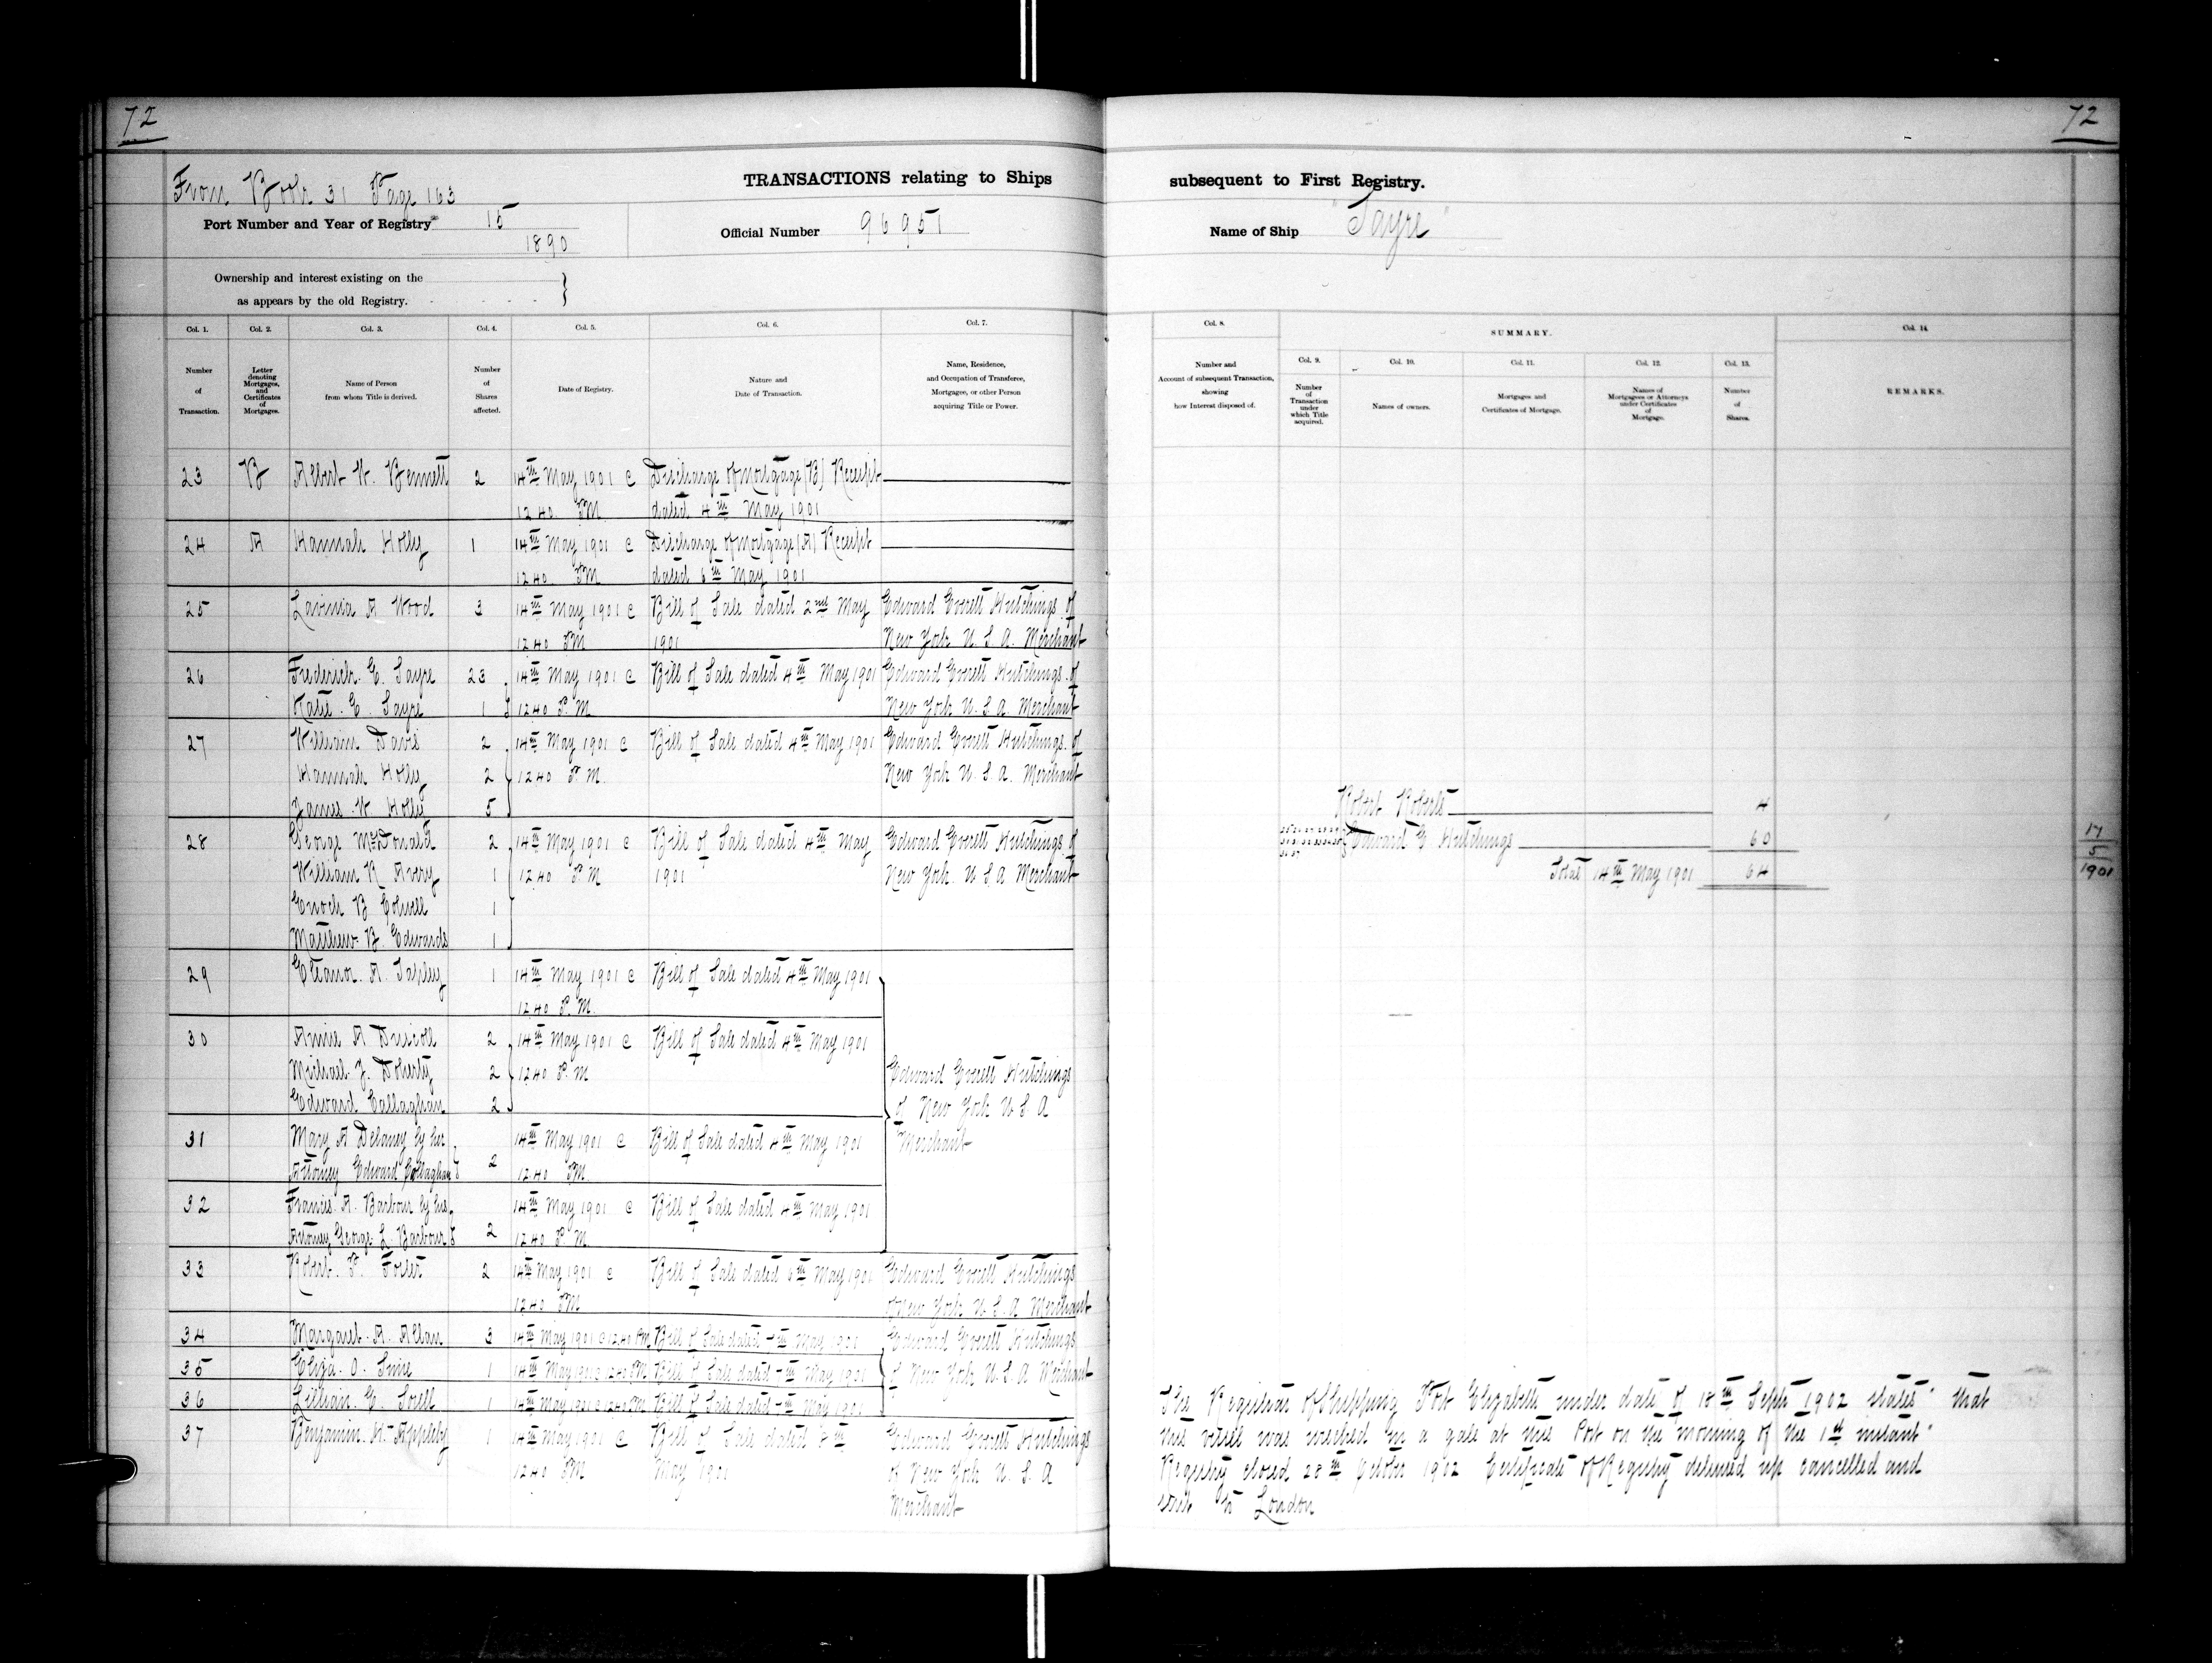 72
72
From Book 31 Page 163
TRANSACTIONS relating to Ships
subsequent to First Registry.
Port Number and Year of Registry 15
1890
Official Number 96951
Name of Ship "Sayre"
Ownership and interest existing on the
as appears by the old Registry.
Col. 1. Col. 2. Col. 3. Col. 4. Col. 5. Col. 6. Col. 7.
Col. 8. SUMMARY. Col. 14.
Col. 9. Col. 10. Col. 11. Col. 12. Col. 13.
Number
of
Transaction.
Letter
denoting
Mortgages,
and
Certificates
of
Mortgages.
Name of Person
from whom Title is derived.
Number
of
Shares
affected.
Date of Registry.
Nature and
Date of Transaction.
Name, Residence,
and Occupation of Transferee,
Mortgagee, or other Person
acquiring Title or Power.
Number and
Account of subsequent Transaction,
showing
how Interest disposed of.
Number
of
Transaction
under
which Title
acquired.
Names of owners.
Mortgages and
Certificates of Mortgage.
Names of
Mortgagees or Attorneys
under Certificates
of
Mortgage.
Number
of
Shares.
REMARKS.
23 B Albert W. Bennett 2 14th May 1901 @ Discharge of Mortgage (B) Receipt
12.40 P.M dated 4th May 1901
24 A Hannah Holly 1 14th May 1901 @ Discharge of Mortgage (A) Receipt
12.40 P.M dated 6th May 1901
25 Lavinia A Wood 3 14th May 1901 @ Bill of Sale dated 2nd May Edward Everett Hutchings of
12.40 P.M 1901 New York U. S. A. Merchant
26 Frederick. E. Sayre 23 14th May 1901 @ Bill of Sale dated 4th May 1901 Edward Everett Hutchings of
Katie. E. Sayre 1 12.40 P. M New York U. S. A. Merchant
27 William Davis 2 14th May 1901 @ Bill of Sale dated 4th May 1901 Edward Everett Hutchings. of
Hannah Holly 2 12.40 P. M. New York U. S. A. Merchant
James. W. Holly 5
28 George McDonald 2 14th May 1901 @ Bill of Sale dated 4th May Edward Everett Hutchings of
William R Avery 1 12.40 P. M 1901 New York. U. S. A Merchant
Enoch B Colwell 1
Matthew. B. Edwards 1
29 Eleanor. A. Tapley 1 14th May 1901 @ Bill of Sale dated 4th May 1901
12.40 P. M.
30 Annie A Driscoll 2 14th May 1901 @ Bill of Sale dated 4th May 1901
Michael. J. Doherty 2 12.40 P. M
Edward Callaghan 2
Edward Everett Hutchings
of New York U. S. A
Merchant
31 Mary A Delaney by her 14th May 1901 @ Bill of Sale dated 4th May 1901
Attorney Edward Callaghan 2 12.40 P.M
32 Francis. A. Barbour by his 14th May 1901 @ Bill of Sale dated 4th May 1901
Attorney George. L. Barbour 2 12.40 P. M
33 Robert. P. Foster 2 14th May 1901 @ Bill of Sale dated 6th May 1901 Edward Everett Hutchings
12.40 P.M of New York U. S. A Merchant
34 Margaret. A. Allan 3 14th May 1901 @ 12.40 P.M Bill of Sale dated 7th May 1901 Edward Everett Hutchings
35 Eliza. O. 1 14th May 1901 @ 12.40 P.M Bill of Sale dated 7th May 1901 of New York U. S. A Merchant
36 Lillian. E. 1 14th May 1901 @ 12.40 P.M Bill of Sale dated 7th May 1901
37 Benjamin. H. Appleby 1 14th May 1901 @ Bill of Sale dated 8th Edward Everett Hutchings
12.40 P.M May 1901 of New York U. S. A
Merchant
Robert Roberts 4
Edward E Hutchings 60
Total 14th May 1901 64
17
5
1901
The Registrar of Shipping Port Elizabeth under date of 18th Septr 1902 states "that
this vessel was wrecked in a gale at this Port on the morning of the 1st instant"
Registry closed 28th October 1902 Certificate of Registry delivered up cancelled and
sent to London